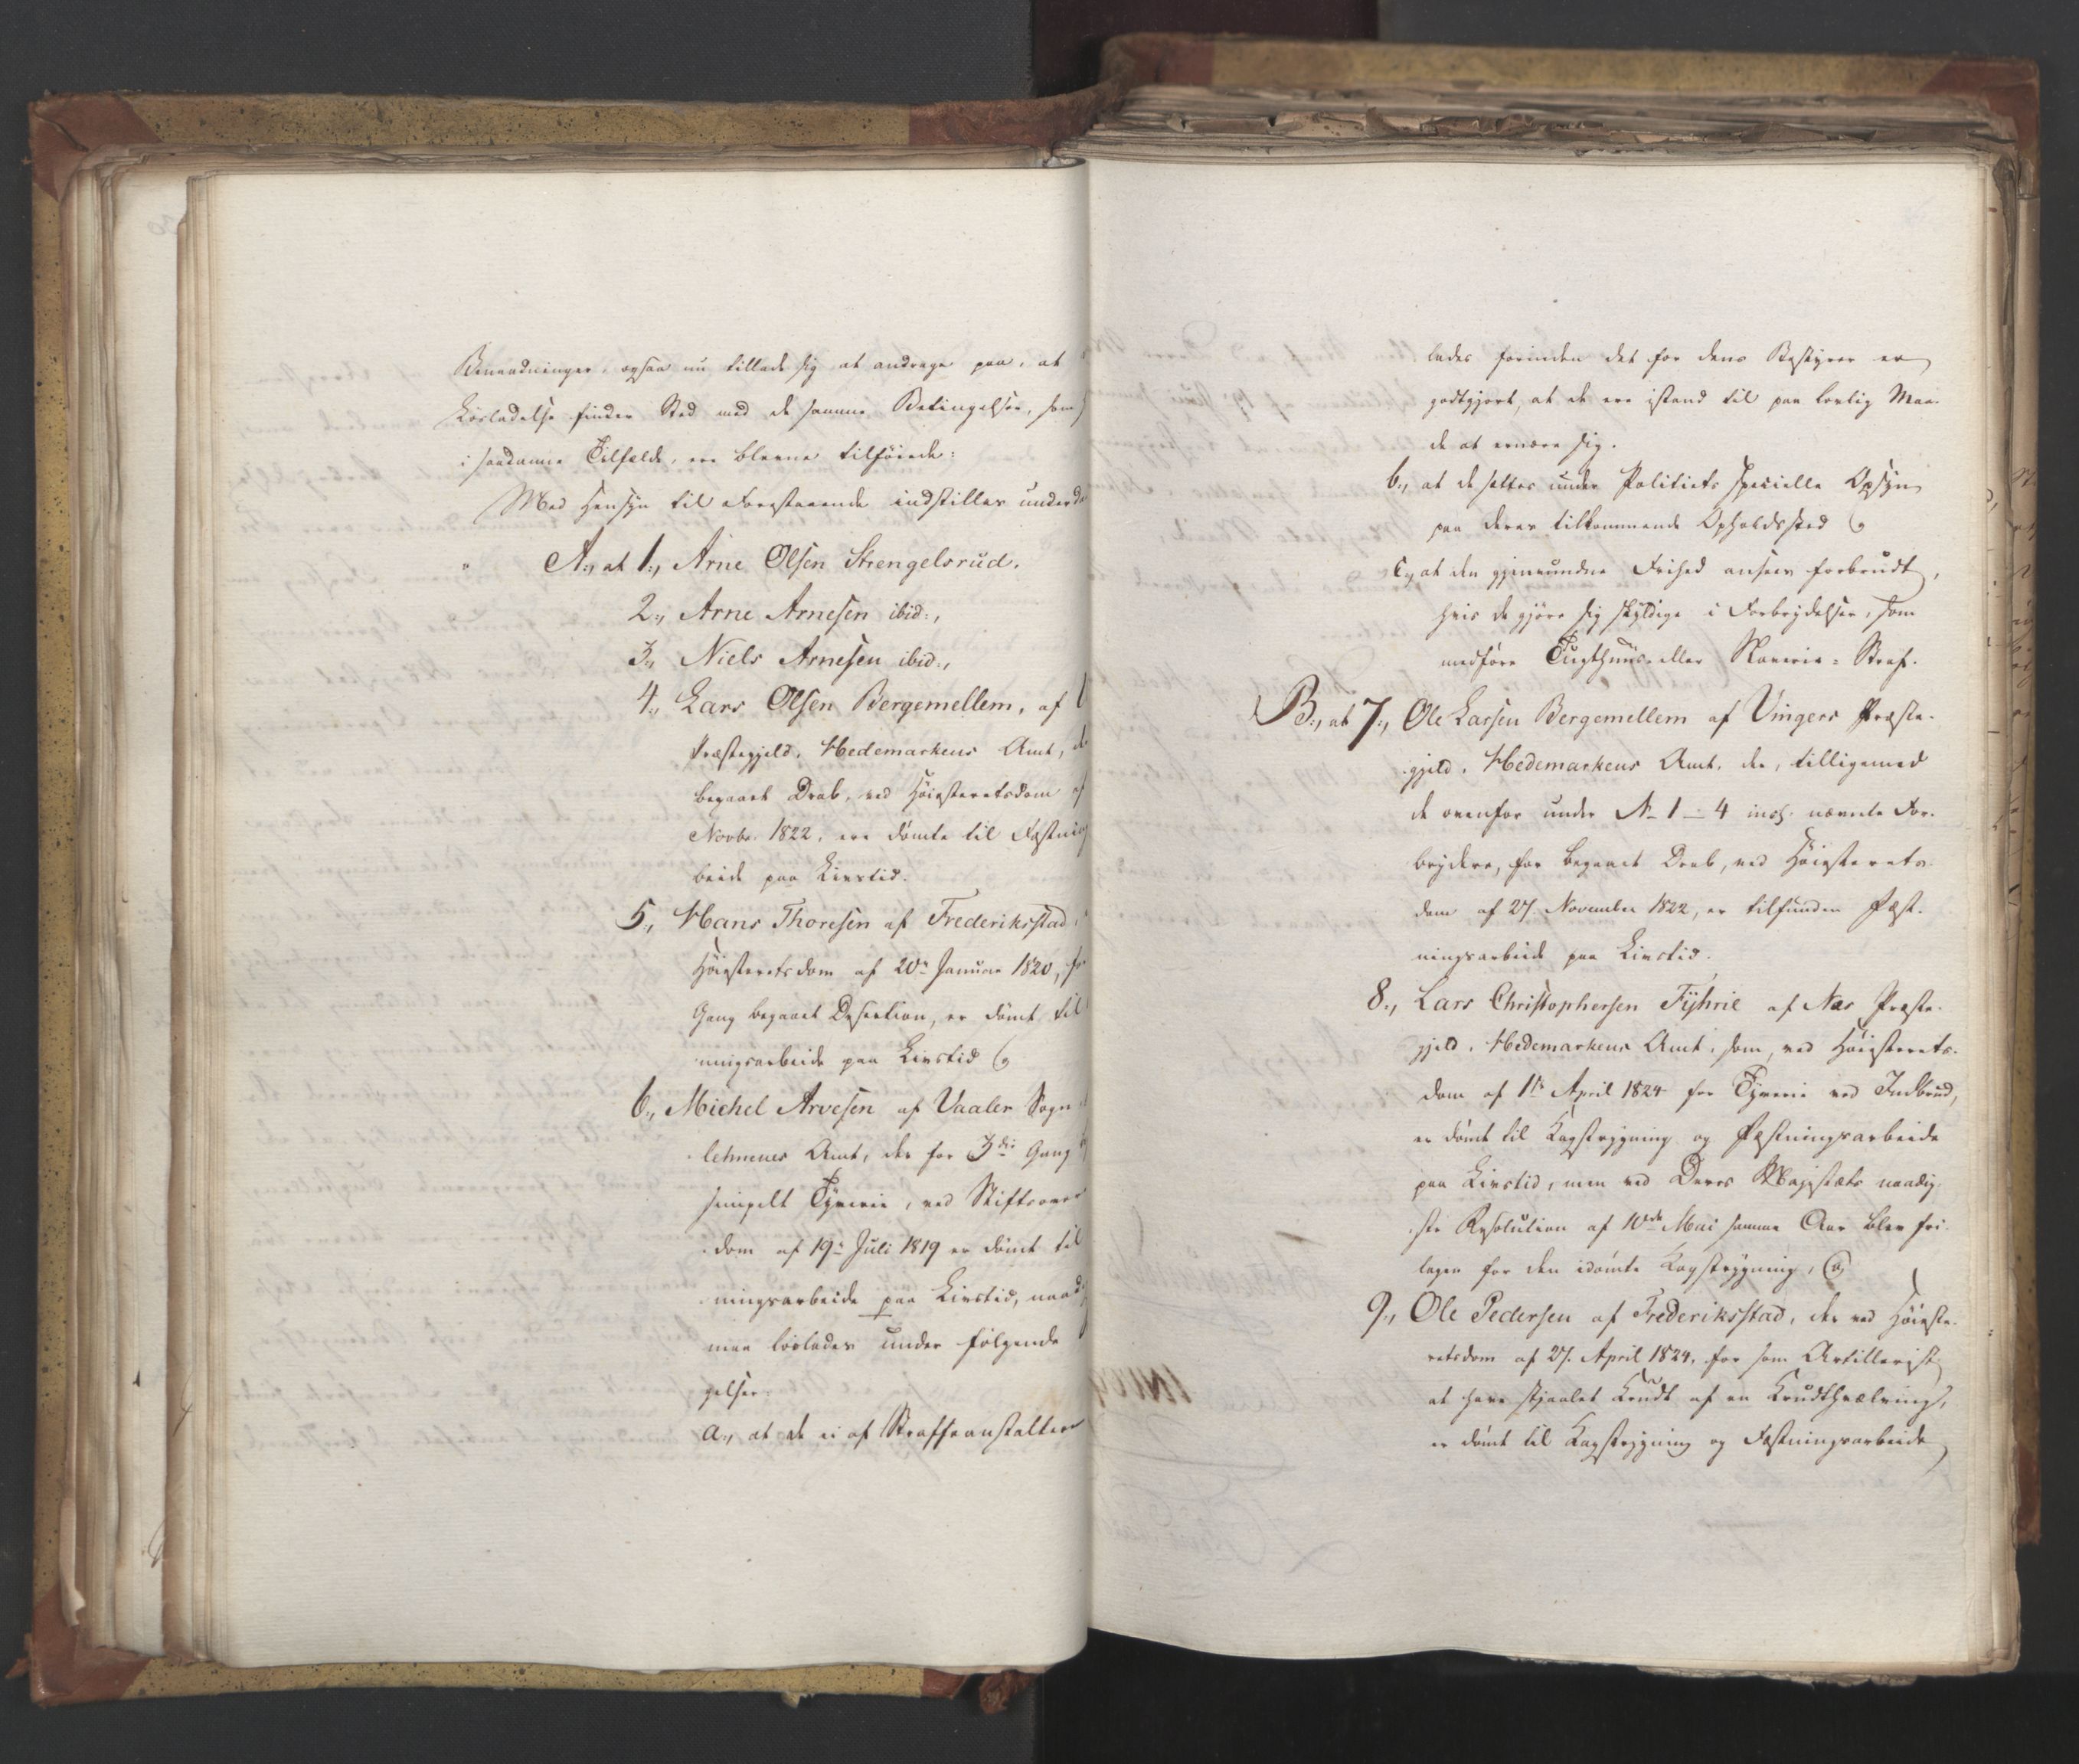 Benaadninger, ogsaa nu tillade sig at andrage paa, at
Løsladelse finder Sted med de samme Betingelser, som
i saadanne Tilfælde, ere blevne tilføiede:
Med Hensyn til Forestaaende indstilles underd
A., at 1., Arne Olsen Strengelsrud.
2., Arne Arnesen ibid:,
3., Niels Arnesen ibid.,
4., Lars Olsen Bergemellem, af
Præstegjeld, Hedemarkens Amt, d
begaaet Drab, ved Høiesteretsdom af
Novbr. 1822, ere dømte til Fæstning
beide paa Livstid.
5., Hans Thoresen af Frederiksstad,
Høiesteretsdom af 20de Januar 1820, for
Gang begaaet Desertion, er dømt til
ningsarbeide paa Livstid og
6., Michel Arvesen af Vaaler Sogn
lehnenes Amt, der for 3die Gang
simpelt Tyverie, ved Stiftsover
dom af 19de Juli 1819 er dømt til
ningsarbeide paa Livstid, naad
maa løslades under følgende
gelser:
a., at de ei af Straffeanstalten
lades forinden det for dens Bestyrer er
godtgjort, at de ere istand til paa lovlig Maa-
de at ernære sig.
b., at de sættes under Politiets specielle Opsyn
paa deres tilkommende Opholdssted og
c., at den gjenvundne Frihed ansees forbrudt,
hvis de gjøre sig skyldige i Forbrydelser, som
medføre Tugthuus- eller Slaverie-Straf.
B., at 7., Ole Larsen Bergemellem af Vingers Præste-
gjeld, Hedemarkens Amt, der, tilligemed
de ovenfor under No 1-4 incl. nævnte For-
brydere, for begaaet Drab, ved Høiesterets-
dom af 27. November 1822, er tilfunden Fæst-
ningsarbeide paa Livstid.
8., Lars Christophersen Fyhrie af Næs Præste-
gjeld, Hedemarkens Amt, som, ved Høiesterets-
dom af 1ste April 1824 for Tyverie ved Indbrud,
er dømt til Kagstrygning og Fæstningsarbeide
paa Livstid, men ved Deres Majestæts naadig-
ste Resolution af 10de Mai samme Aar blev fri-
tagen for den idømte Kagstrygning, og
9., Ole Pedersen af Frederiksstad, der ved Høieste-
retsdom af 27. April 1824, for som Artillerist
at have stjaalet Krudt af en Krudthvælving,
er dømt til Kagstrygning og Fæstningsarbeide